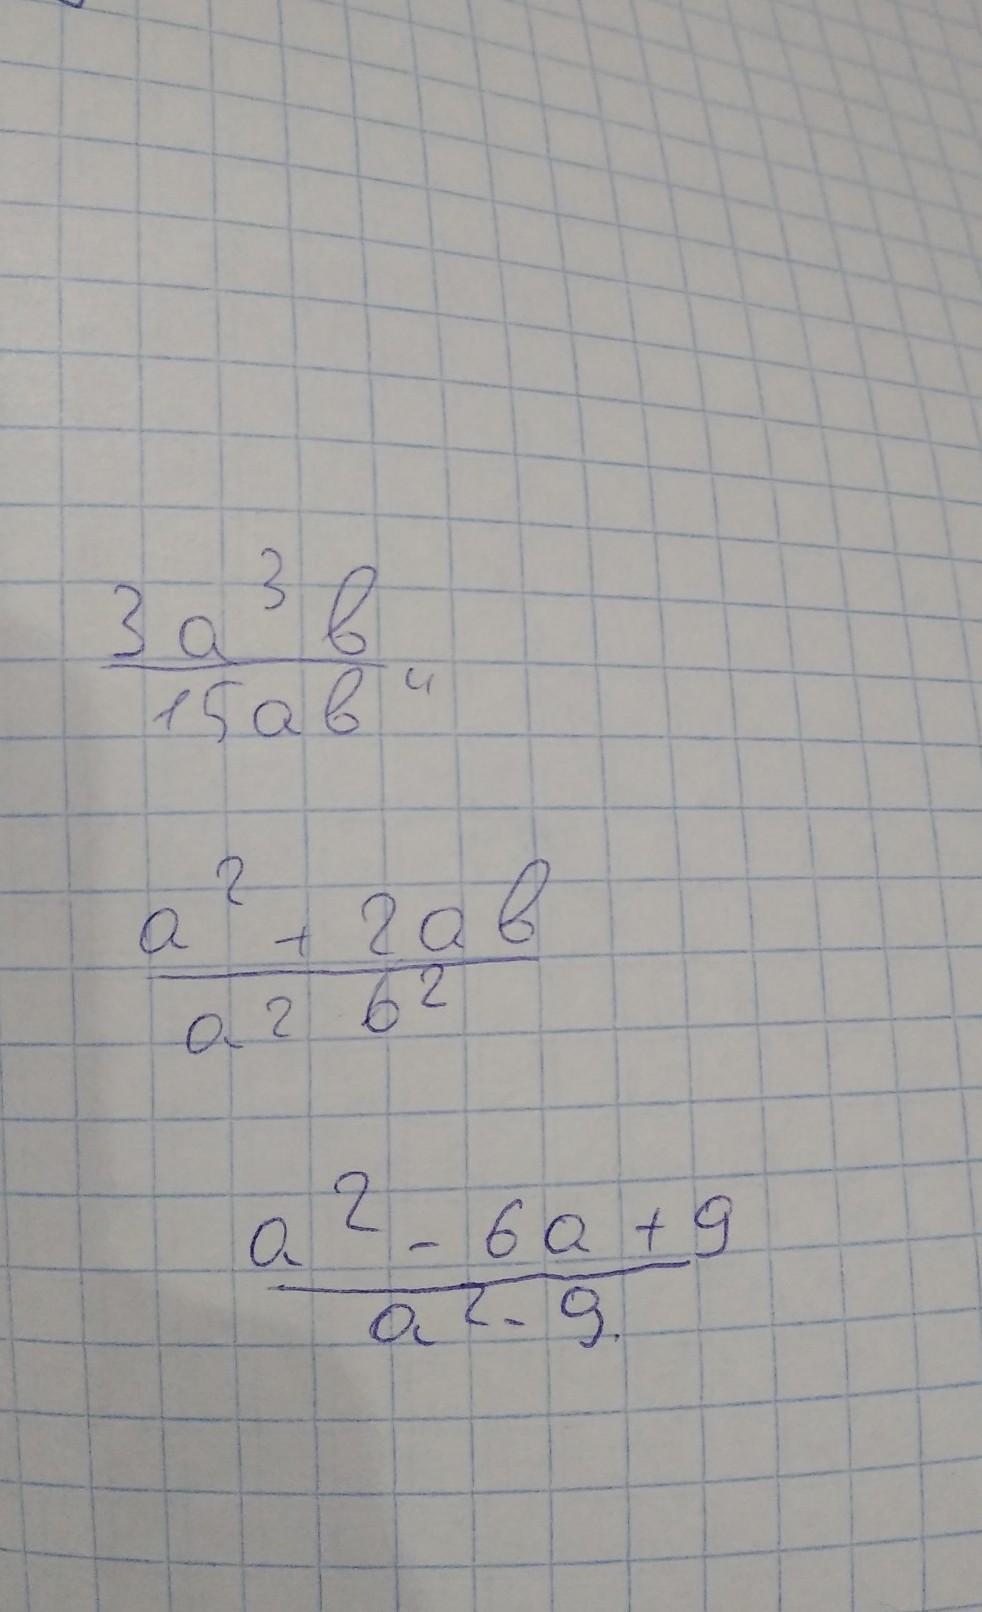 3a³b
15ab⁴
a² + 2ab
a² b²
a² - 6a + 9
a² - 9.